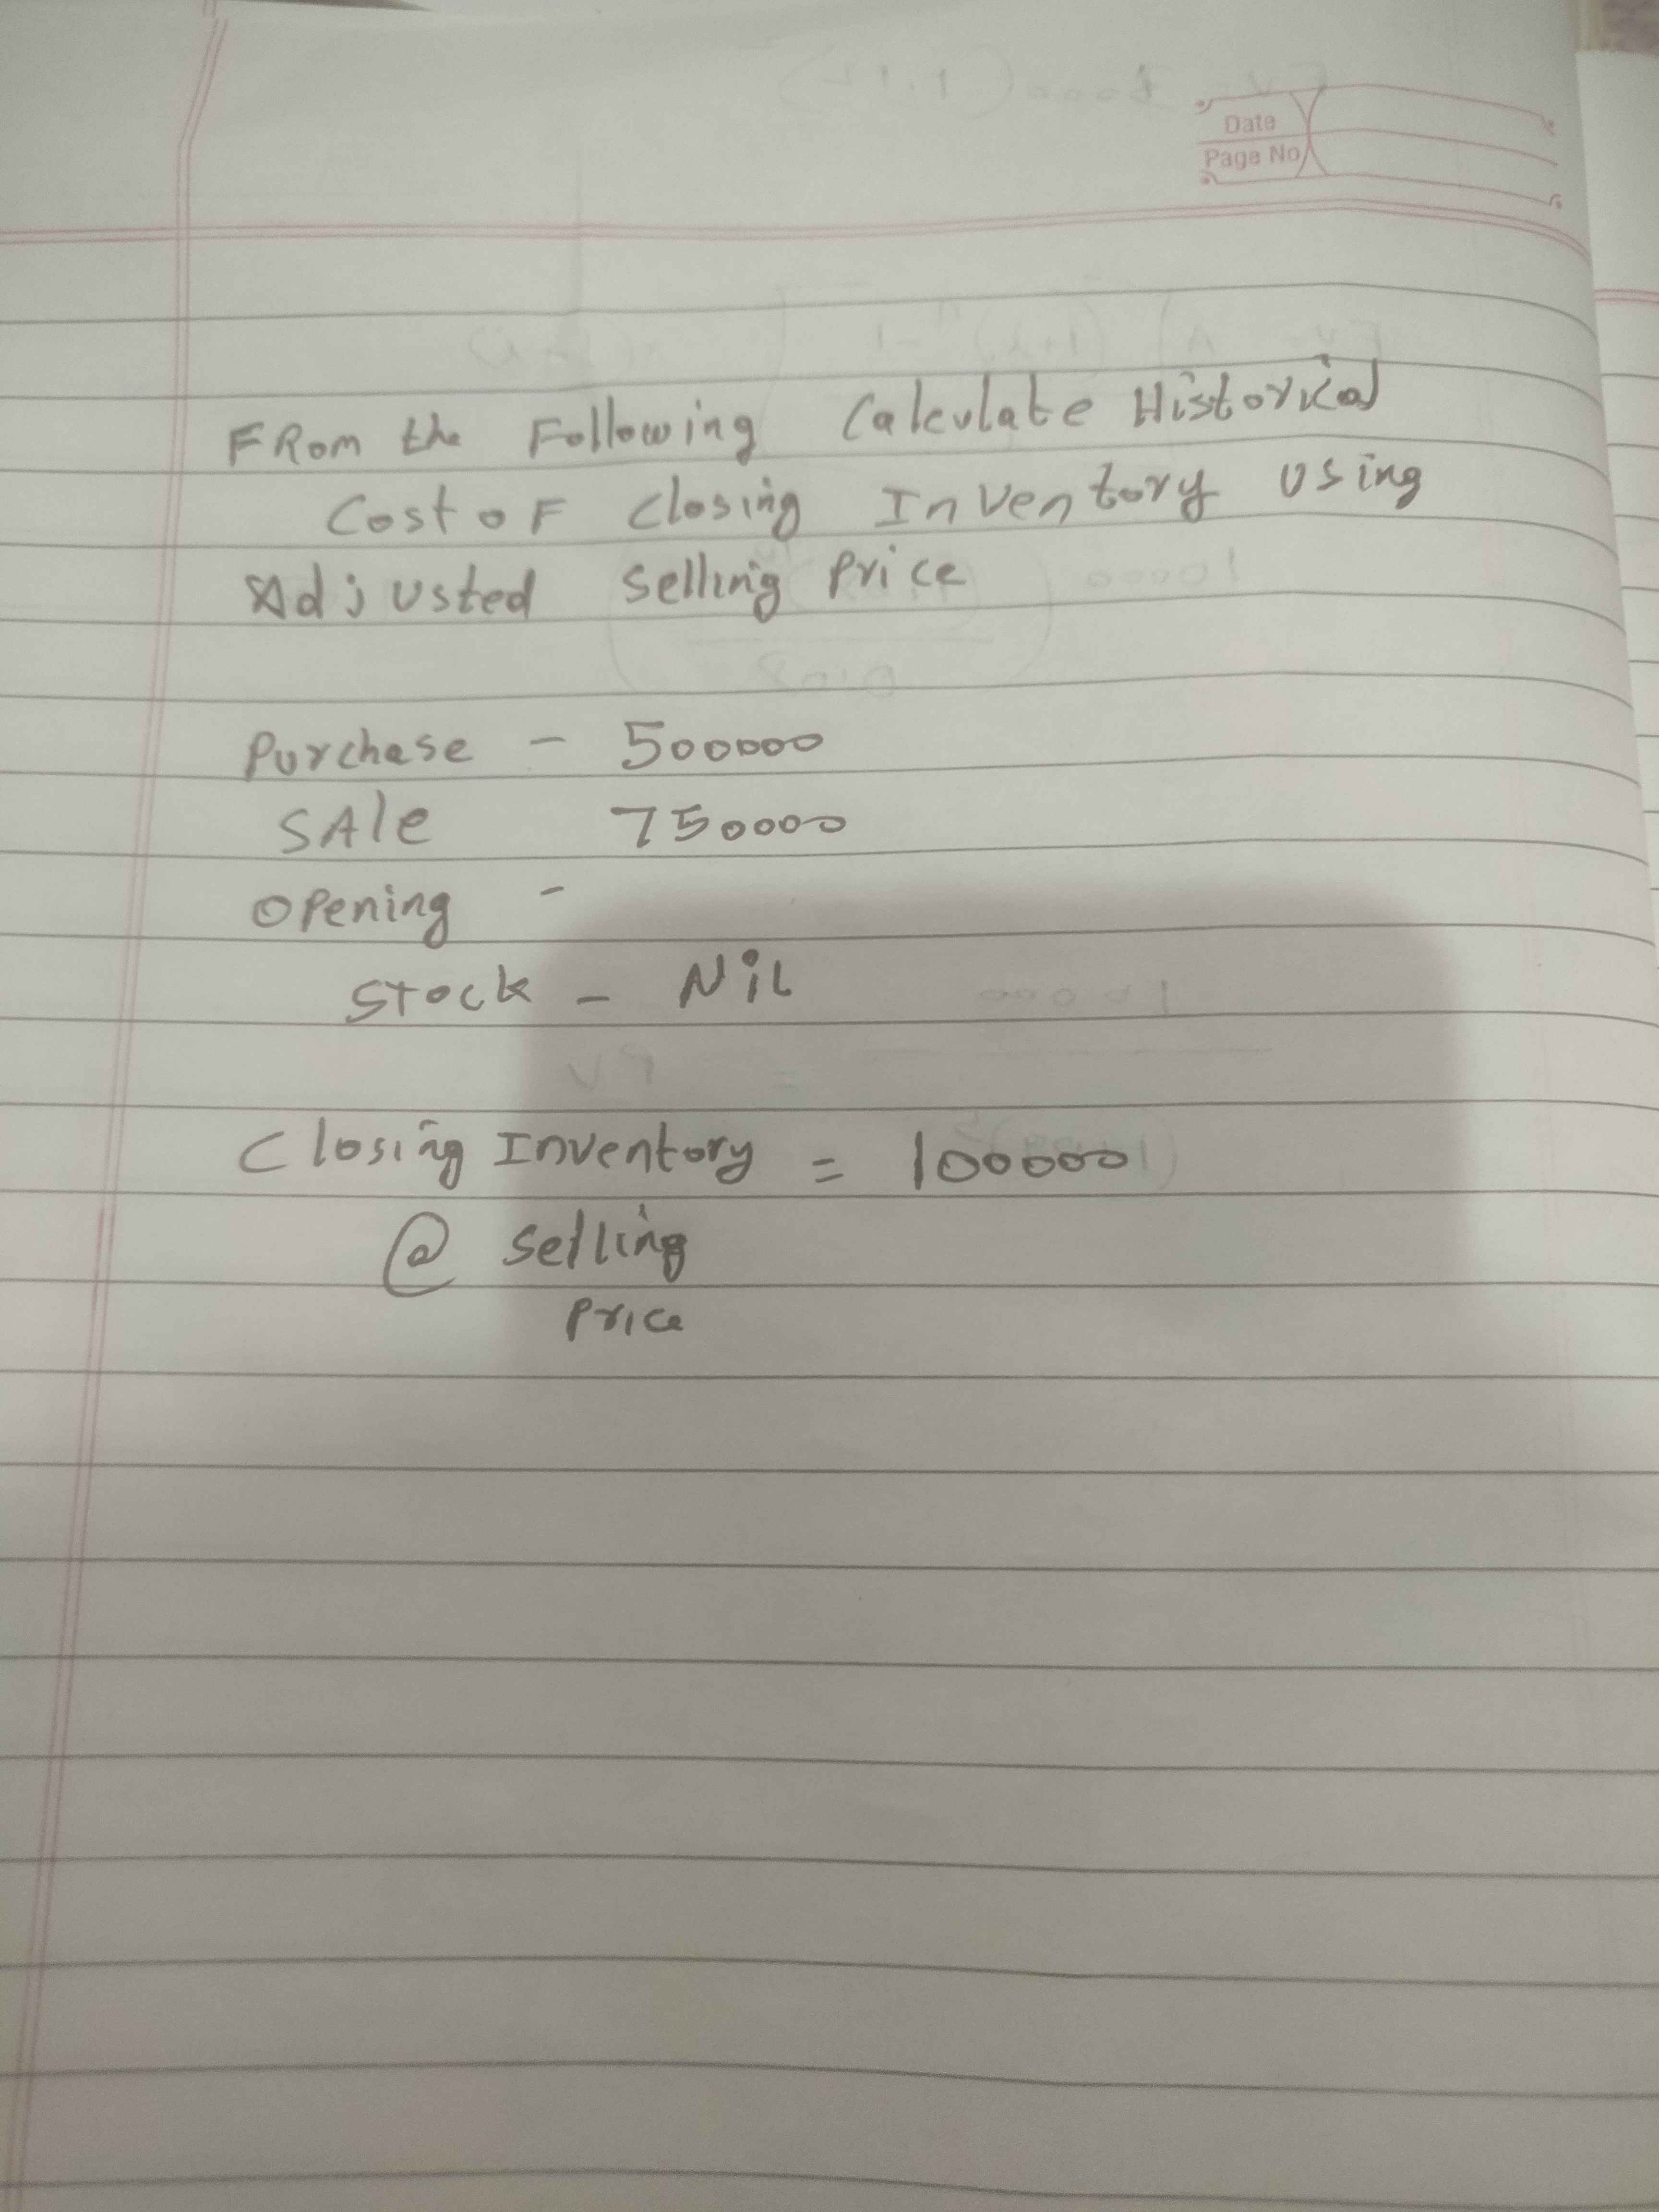 Date
Page No
FRom the Following Calculate Historical
Cost oF Closing Inventory Using
Adjusted Selling Price
Purchase - 500000
SAle 750000
Opening -
Stock - NiL
Closing Inventory = 100000
@ Selling
Price